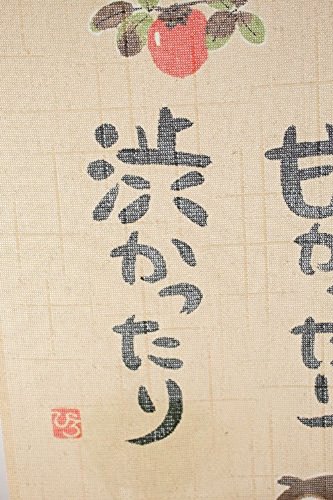 甘かったり
渋かったり
ひろ